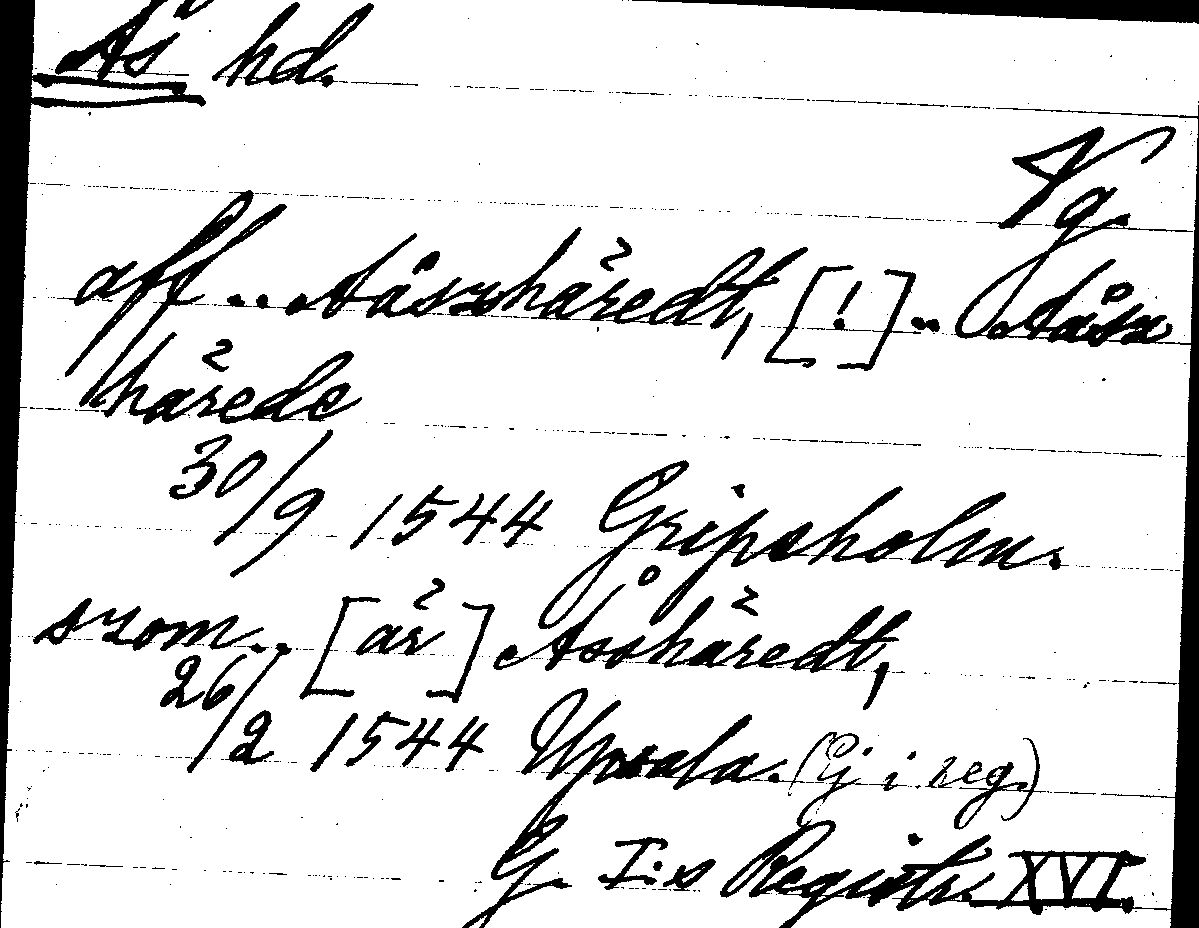 Ås hd.
Vg.
aff .. Aåszhäredt, [!] .. Aåsz
härede
30/9 1544 Gripsholm.
szom .. [är] Åsshäredt,
26/2 1544 Upsala. (Ej i reg.)
G. I:s Registr. XVI.